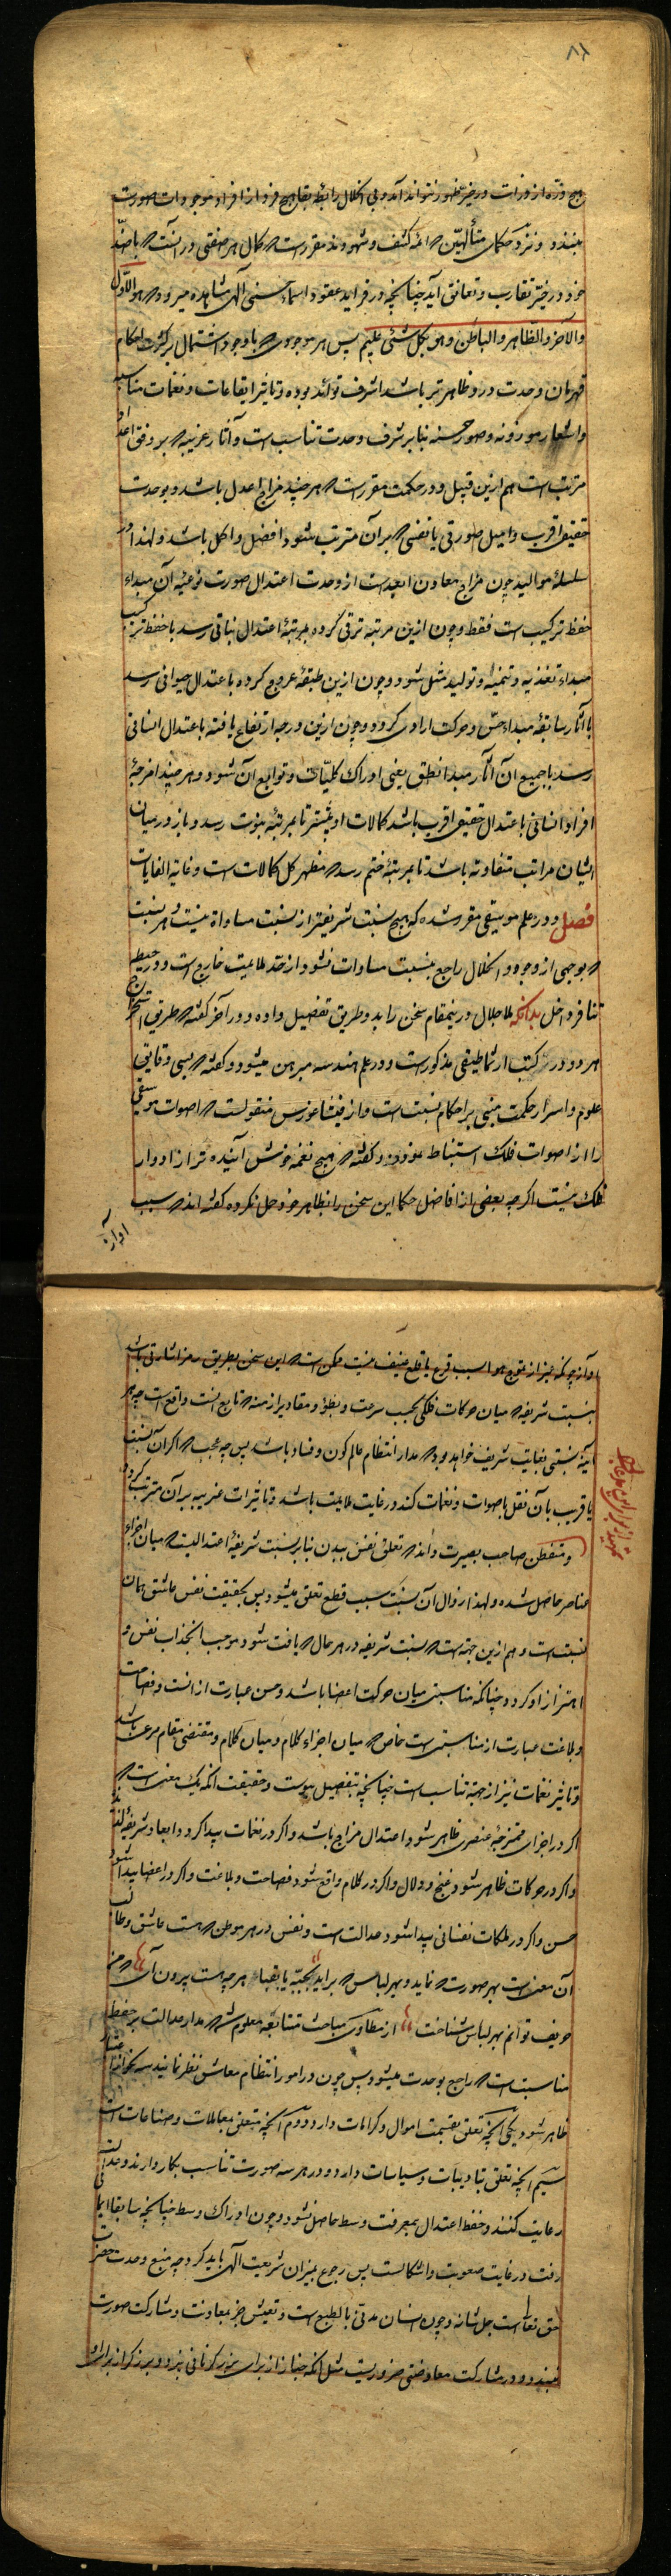 هیچ ذره از ذرات در حیز ظهور نتواند آمد و بی اظلال رابطه بقا هیچ فرد از افراد موجودات صورت
نبندد و نزد حکمای متألهین که ائمه کشف و شهودند مقررست که کمال هر صفتی در آنست که با ضد
خود در حیز تقارب و تعانق آید چنانچه در فراید عقود اسماء حسنی الهی مشاهده میرود که هو الاول
والآخر والظاهر والباطن وهو بکل شئ علیم پس هر موجودی که با وجود اشتمال بر کثرت احکام
قهرمان وحدت در و ظاهرتر باشد اشرف تواند بود و تاثیر ایقاعات و نغمات متناسبه
و اشعار موزونه و صور حسنه بنابر شرف وحدت تناسب است و آثار غریبه که بر وفق اعداد
مرتب است هم ازین قبیل و در حکمت مقررست که هر چند مزاج اعدل باشد و بوحدت
حقیقی اقرب و امیل صورتی یا نفسی که بر آن مترتب شود افضل و اکمل باشد و لهذا در
سلسله موالید چون مزاج معادن ابعد است از وحدت اعتدال صورت نوعیه آن مبداء
حفظ ترکیب است فقط و چون ازین مرتبه ترقی کرده بمرتبه اعتدال نباتی رسد با حفظ ترکیب
مبداء تغذیه و تنمیه و تولید مثل شود و چون ازین طبقه عروج کرده باعتدال حیوانی رسد
با آثار سابقه مبداء حس و حرکت ارادی گردد و چون ازین درجه ارتفاع یافته باعتدال انسانی
رسد با جمیع آن آثار مبدا نطق یعنی ادراک کلیات و توابع آن شود و هر چند امزجه
افراد انسانی باعتدال حقیقی اقرب باشد کمالات او بیشتر تا بمرتبه نبوت رسد و باز در میان
ایشان مراتب متفاوته باشد تا بمرتبه ختم رسد که مظهر کل کمالات است و غایة الغایات
فصل و در علم موسیقی مقرر شده که هیچ نسبت شریفتر از نسبت مساواة نیست و هر نسبت
که بوجهی از وجوه و انحلال راجع بنسبت مساوات نشود از حد ملایمت خارج است و در حیطه
تنافر داخل بدانکه ملا جلال درینمقام سخن را بدو طریق تفصیل داده و در آخر گفته که طریق استخراج
هر دو در کتب ارثماطیقی مذکورست و در علم هندسه مبرهن میشود و گفته که بسی دقایق
علوم و اسرار حکمت مبنی بر احکام نسبت است و از فیثاغورس منقولست که اصوات موسیقی
را از اصوات فلک استنباط نموده و گفته که هیچ نغمه خوش آینده تر از ادوار
فلک نیست اگر چه بعضی از افاضل حکما این سخن را بظاهر خود حمل نکرده گفته اند که سبب
آواز
آواز چونکه غیر از تموج هوا بسبب قرع یا قلع عنیف نیست ممکن است که این سخن بطریق رمز اشارتی باشد
بنسبت شریفه که میان حرکات فلکی بحسب سرعت و بطؤ و مقادیر ازمنه که تابع آنست واقع است چه هر
آینه نسبتی بغایت شریف خواهد بود که مدار انتظام عالم کون و فساد باشد پس چه عجب که اگر آن نسبت
یا قریب بآن نقل باصوات و نغمات کنند در غایت ملایمت باشد و تاثیرات غریبه بر آن مترتب گردد
و متفطن صاحب بصیرت داند که تعلق نفس ببدن بنابر نسبت شریفه اعتدالیست که میان اجزاء
عناصر حاصل شده و لهذا زوال آن نسبت سبب قطع تعلق میشود پس بحقیقت نفس عاشق همان
نسبت است و هم ازین جهت است که نسبت شریفه در هر محال که یافت شود موجب انجذاب نفس و
اهتزاز او گردد چنانکه مناسبتی میان حرکت اعضا باشد و حسن عبارت از آنست و فصاحت
و بلاغت عبارت از مناسبتی است خاص که میان اجزاء کلام و میان کلام و مقتضی مقام مرعی باشد
و تاثیر نغمات نیز از جهة تناسب است چنانچه بتفصیل پیوست و حقیقت آنکه یک معنی است که
اگر در اجزای ممتزجه عنصری ظاهر شود اعتدال مزاج باشد و اگر در نغمات پیدا گردد ابعاد شریفه لذیذه
و اگر در حرکات ظاهر شود غنج و دلال و اگر در کلام واقع شود فصاحت و بلاغت و اگر در اعضا پیدا شود
حسن و اگر در ملکات نفسانی پیدا شود عدالت است و نفس در هر موطن که هست عاشق و طالب
آن معنی است بهر صورت که نماید و بهر لباس که براید بجبه یا بقباء هر چه هست بیرون آی که من
حریف توانم بهر لباس شناخت از مطاوی مباحث متتابعه معلوم شد که مدار عدالت بر حفظ
مناسبت است که راجع بوحدت میشود پس چون در امور انتظام معاش نظر نمایند سه نحو اعتبار
ظاهر شود یکی آنچه تعلق بقسمت اموال و کرامات دارد دوم آنچه متعلق بمعاملات و صناعات است
سیم آنچه تعلق بتادیبات و سیاسات دارد و در هر سه صورت تناسب بکار دارند و عدالت
رعایت کنند و حفظ اعتدال بمعرفت وسط حاصل شود و چون ادراک وسط چنانچه سابقا ایمائی
رفت در غایت صعوبت و اشکالست پس رجوع بمیزان شریعت الهی باید کرد چه منبع وحدت حضرت
حق تعالی است جل شانه و چون انسان مدنی بالطبع است و تعیش جز بمعاونت و مشارکت صورت
نبندد و در مشارکت معاوضتی ضروریست مثل آنکه خباز از برای بزرگر نانی پزد و برزگر از برای او